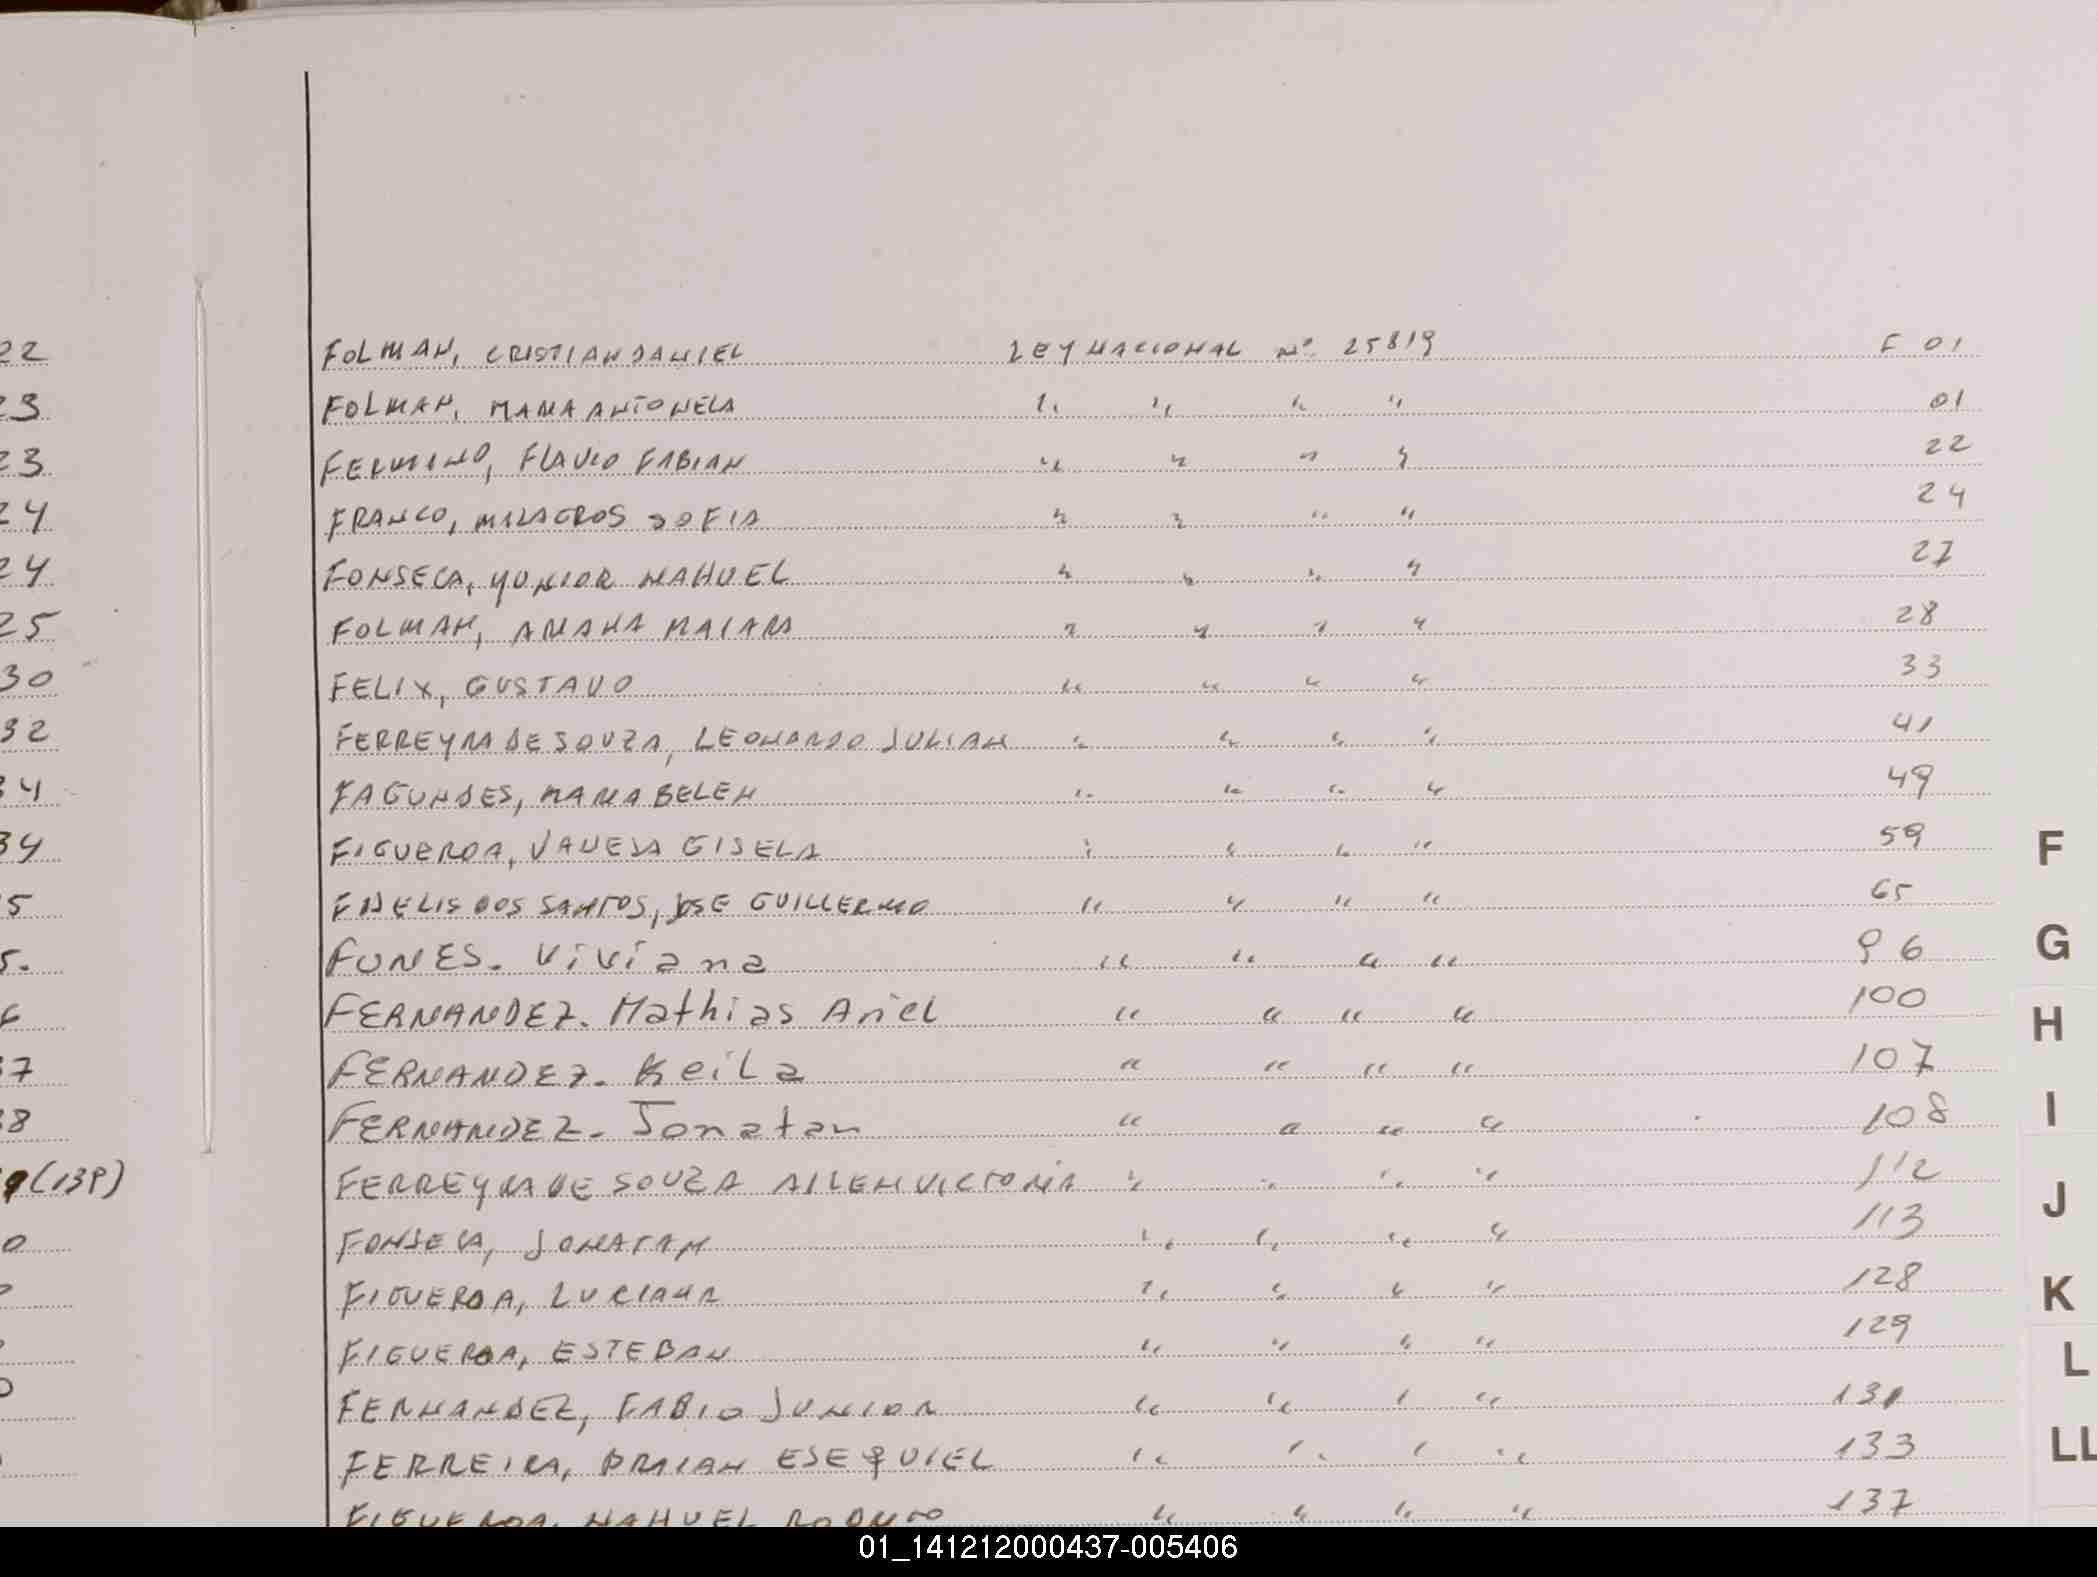 22
FOLMAN, CRISTIAN DANIEL LEY NACIONAL Nº 25819 F 01
23
FOLMAN, MARIA ANTONELA " " " " 01
23
FERMINO, FLAVIO FABIAN " " " " 22
24
FRANCO, MILAGROS SOFIA " " " " 24
24
FONSECA, YUNIOR NAHUEL " " " " 27
25
FOLMAN, AMANA MAIARA " " " " 28
30
FELIX, GUSTAVO " " " " 33
32
FERREYRA DE SOUZA, LEONARDO JULIAN " " " " 41
34
FAGUNDES, MARIA BELEN " " " " 49
34
FIGUEROA, VANESA GISELA " " " " 59
5
FIDELIS DOS SANTOS, JOSE GUILLERMO " " " " 65
5.
FUNES. Viviana " " " " 96
6
FERNANDEZ. Mathias Ariel " " " " 100
37
FERNANDEZ. Keila " " " " 107
38
FERNANDEZ. Jonatan " " " " 108
9 (139)
FERREYRA DE SOUZA AILEN VICTORIA " " " " 112
0
FONSECA, JONATAN " " " " 113
FIGUEROA, LUCIANA " " " " 128
FIGUEROA, ESTEBAN " " " " 129
0
FERNANDEZ, FABIO JUNIOR " " " " 131
FERREIRA, BRAIAN ESEQUIEL " " " " 133
FIGUEROA, NAHUEL RODRIGO " " " " 137
F
G
H
I
J
K
L
LL
01_141212000437-005406